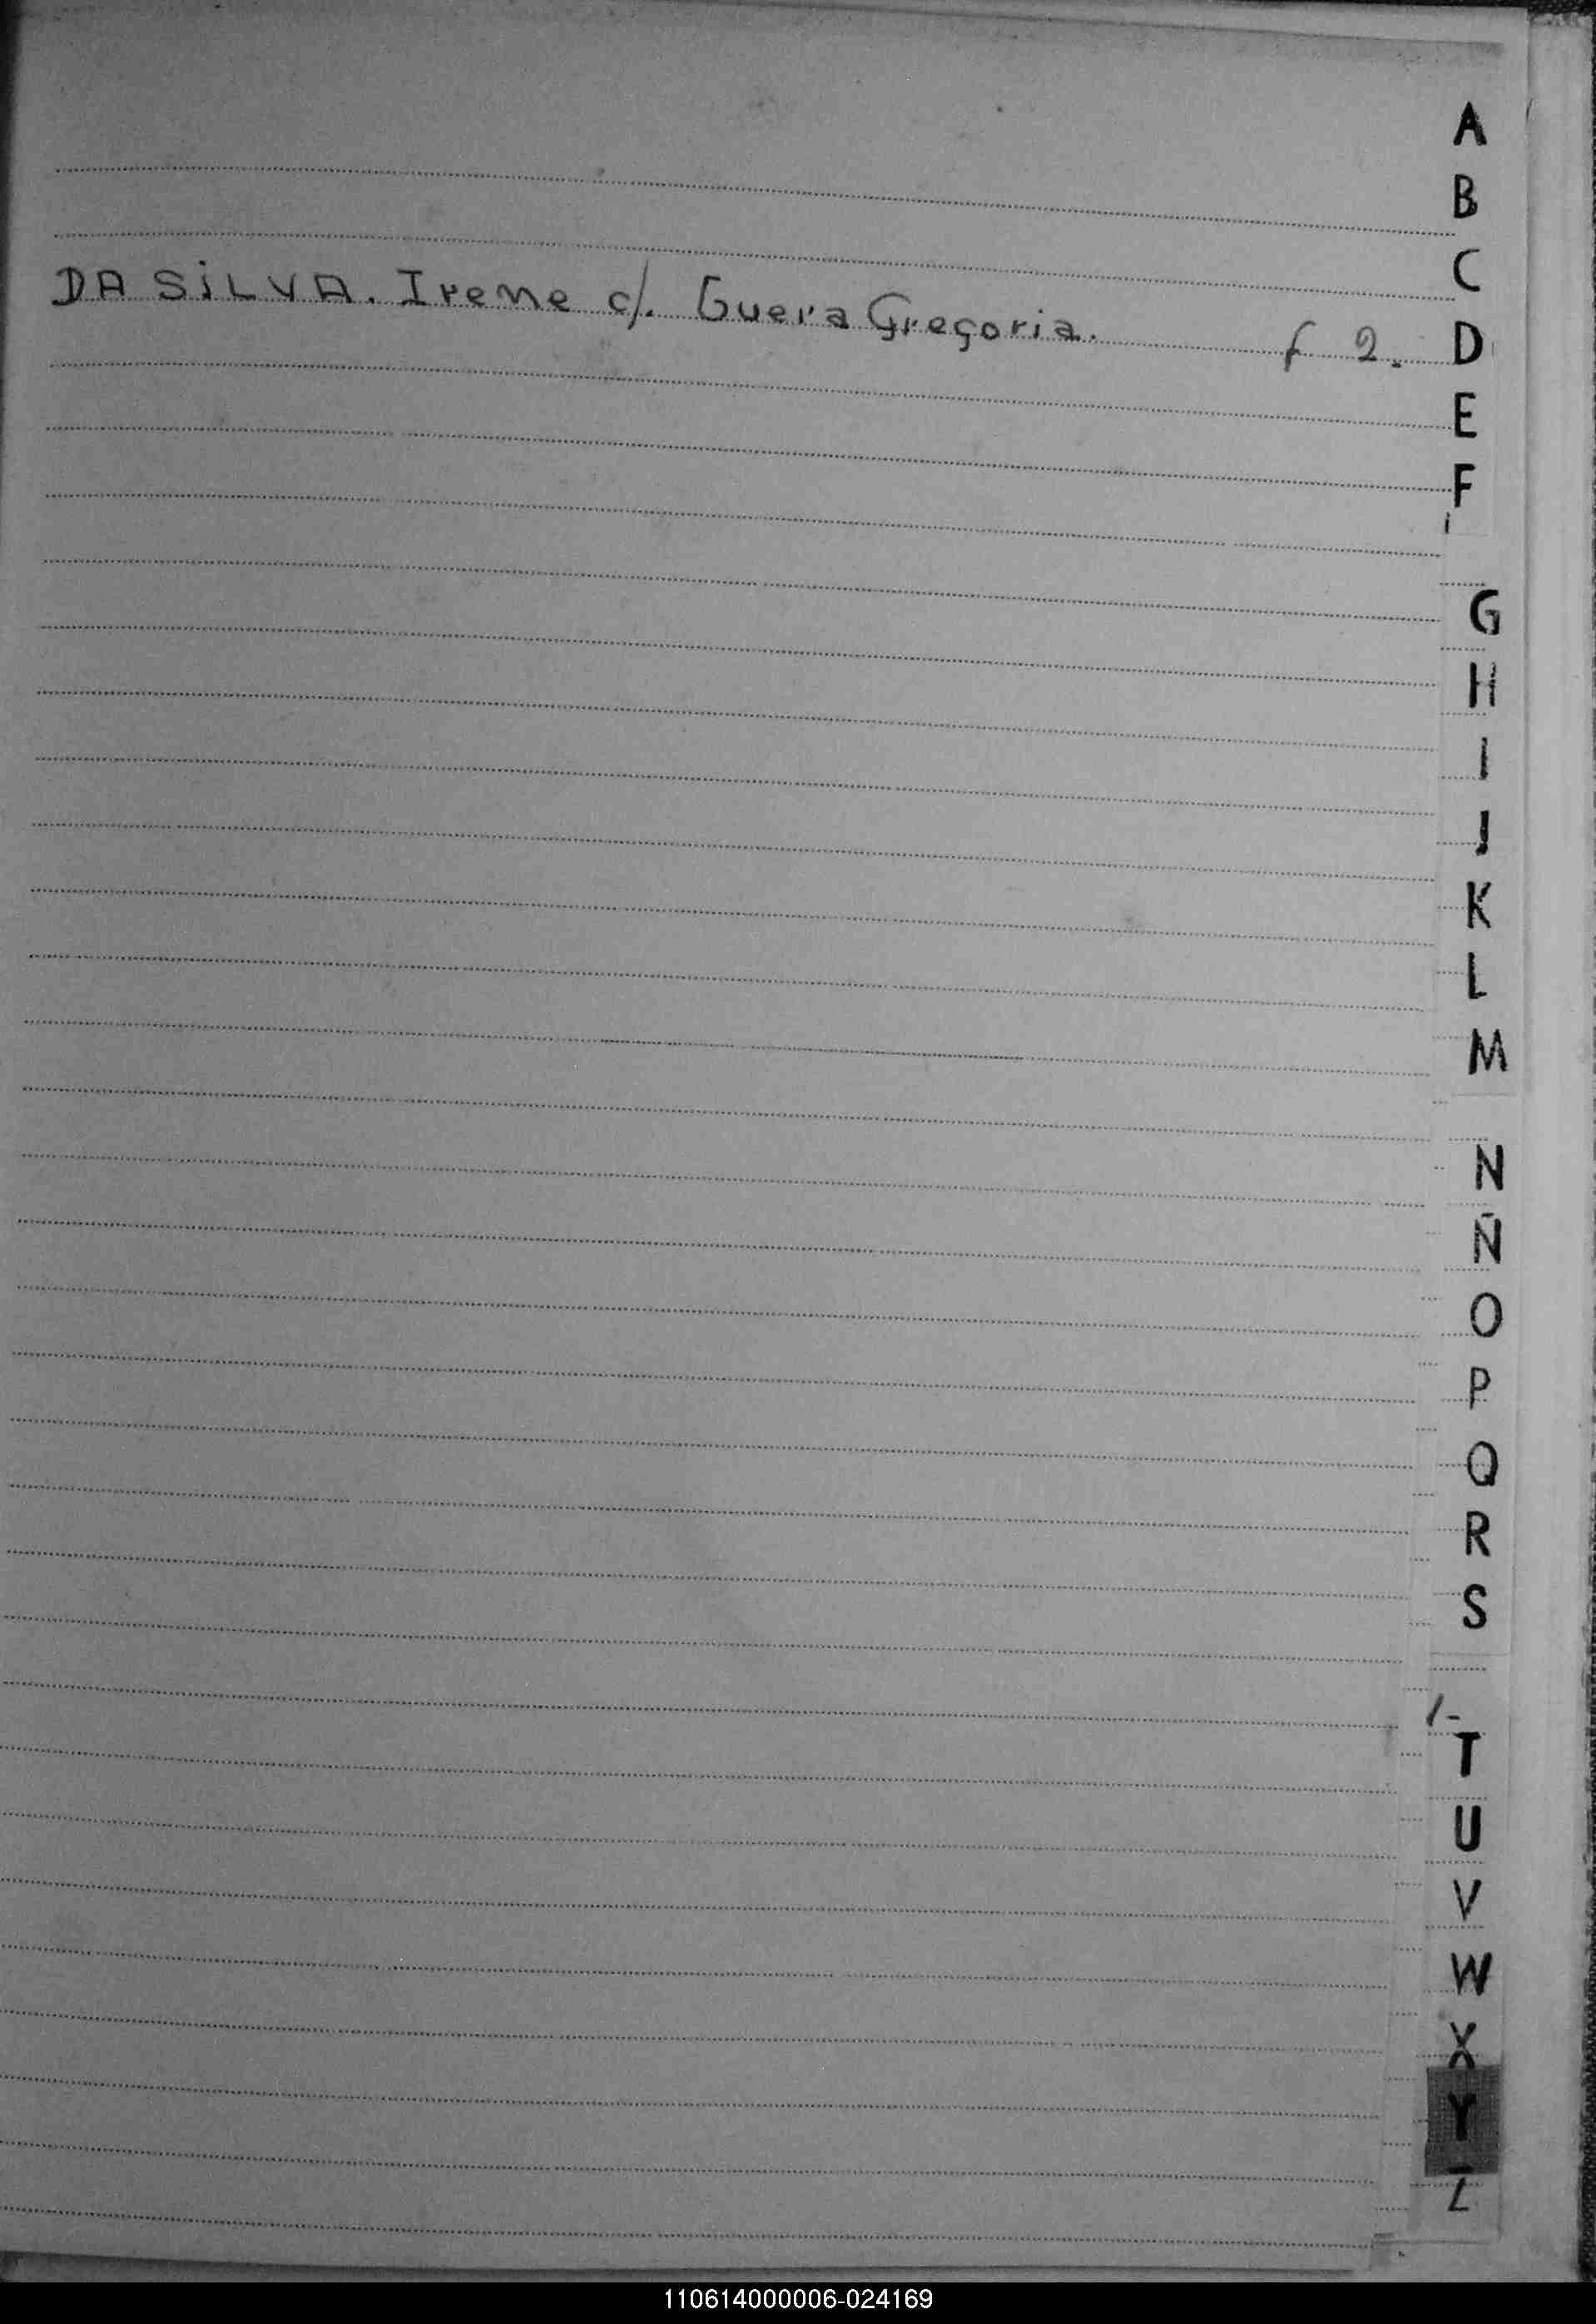 DA SiLVA. Irene c/. Guera Gregoria. f 2.
A
B
C
D
E
F
G
H
I
J
K
L
M
N
Ñ
O
P
Q
R
S
T
U
V
W
X
Y
Z
110614000006-024169